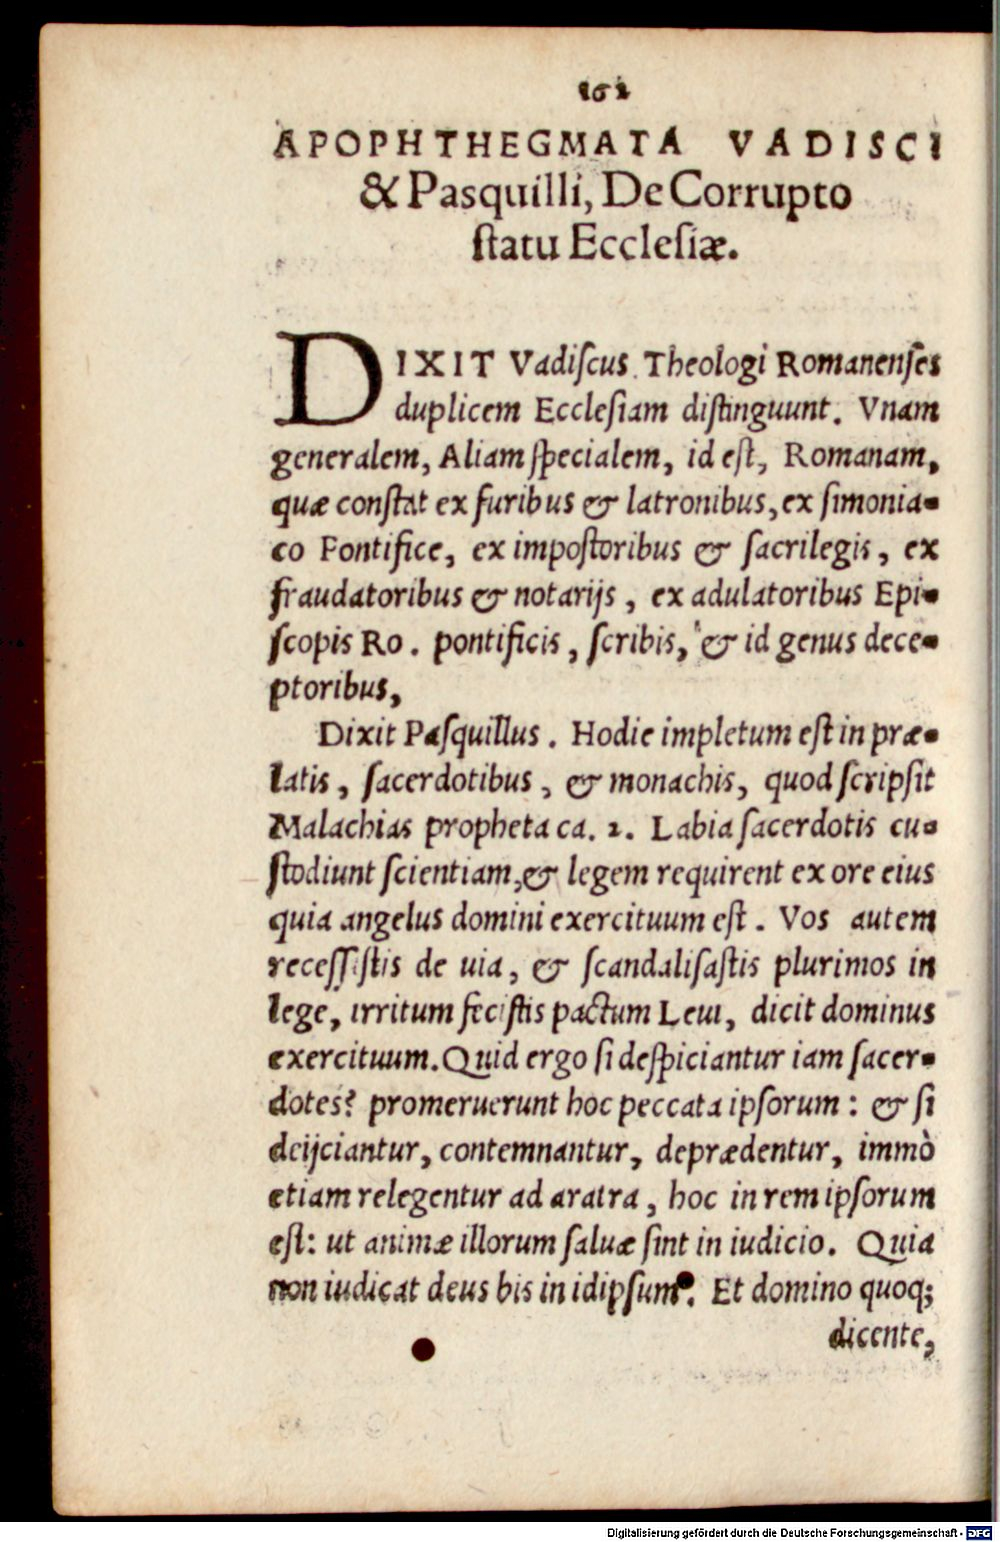 162
APOPHTHEGMATA VADISCI
& Pasquilli, De Corrupto
ſtatu Eccleſiæ.
DIXIT Vadiſcus. Theologi Romanenſes
duplicem Eccleſiam diſtinguunt. Vnam
generalem, Aliam ſpecialem, id eſt, Romanam,
quæ conſtat ex furibus & latronibus, ex ſimonia-
co Pontifice, ex impoſtoribus & ſacrilegis, ex
fraudatoribus & notarijs, ex adulatoribus Epi-
ſcopis Ro. pontificis, ſcribis, & id genus dece-
ptoribus,
Dixit Paſquillus. Hodie impletum eſt in præ-
latis, ſacerdotibus, & monachis, quod ſcripſit
Malachias propheta ca. 2. Labia ſacerdotis cu-
ſtodiunt ſcientiam, & legem requirent ex ore eius
quia angelus domini exercituum eſt. Vos autem
receſſiſtis de uia, & ſcandaliſaſtis plurimos in
lege, irritum feciſtis pactum Leui, dicit dominus
exercituum. Quid ergo ſi deſpiciantur iam ſacer-
dotes? promeruerunt hoc peccata ipſorum: & ſi
deijciantur, contemnantur, deprædentur, immò
etiam relegentur ad aratra, hoc in rem ipſorum
eſt: ut animæ illorum ſaluæ ſint in iudicio. Quia
non iudicat deus bis in idipſum. Et domino quoq;
dicente,
Digitalisierung gefördert durch die Deutsche Forschungsgemeinschaft - DFG